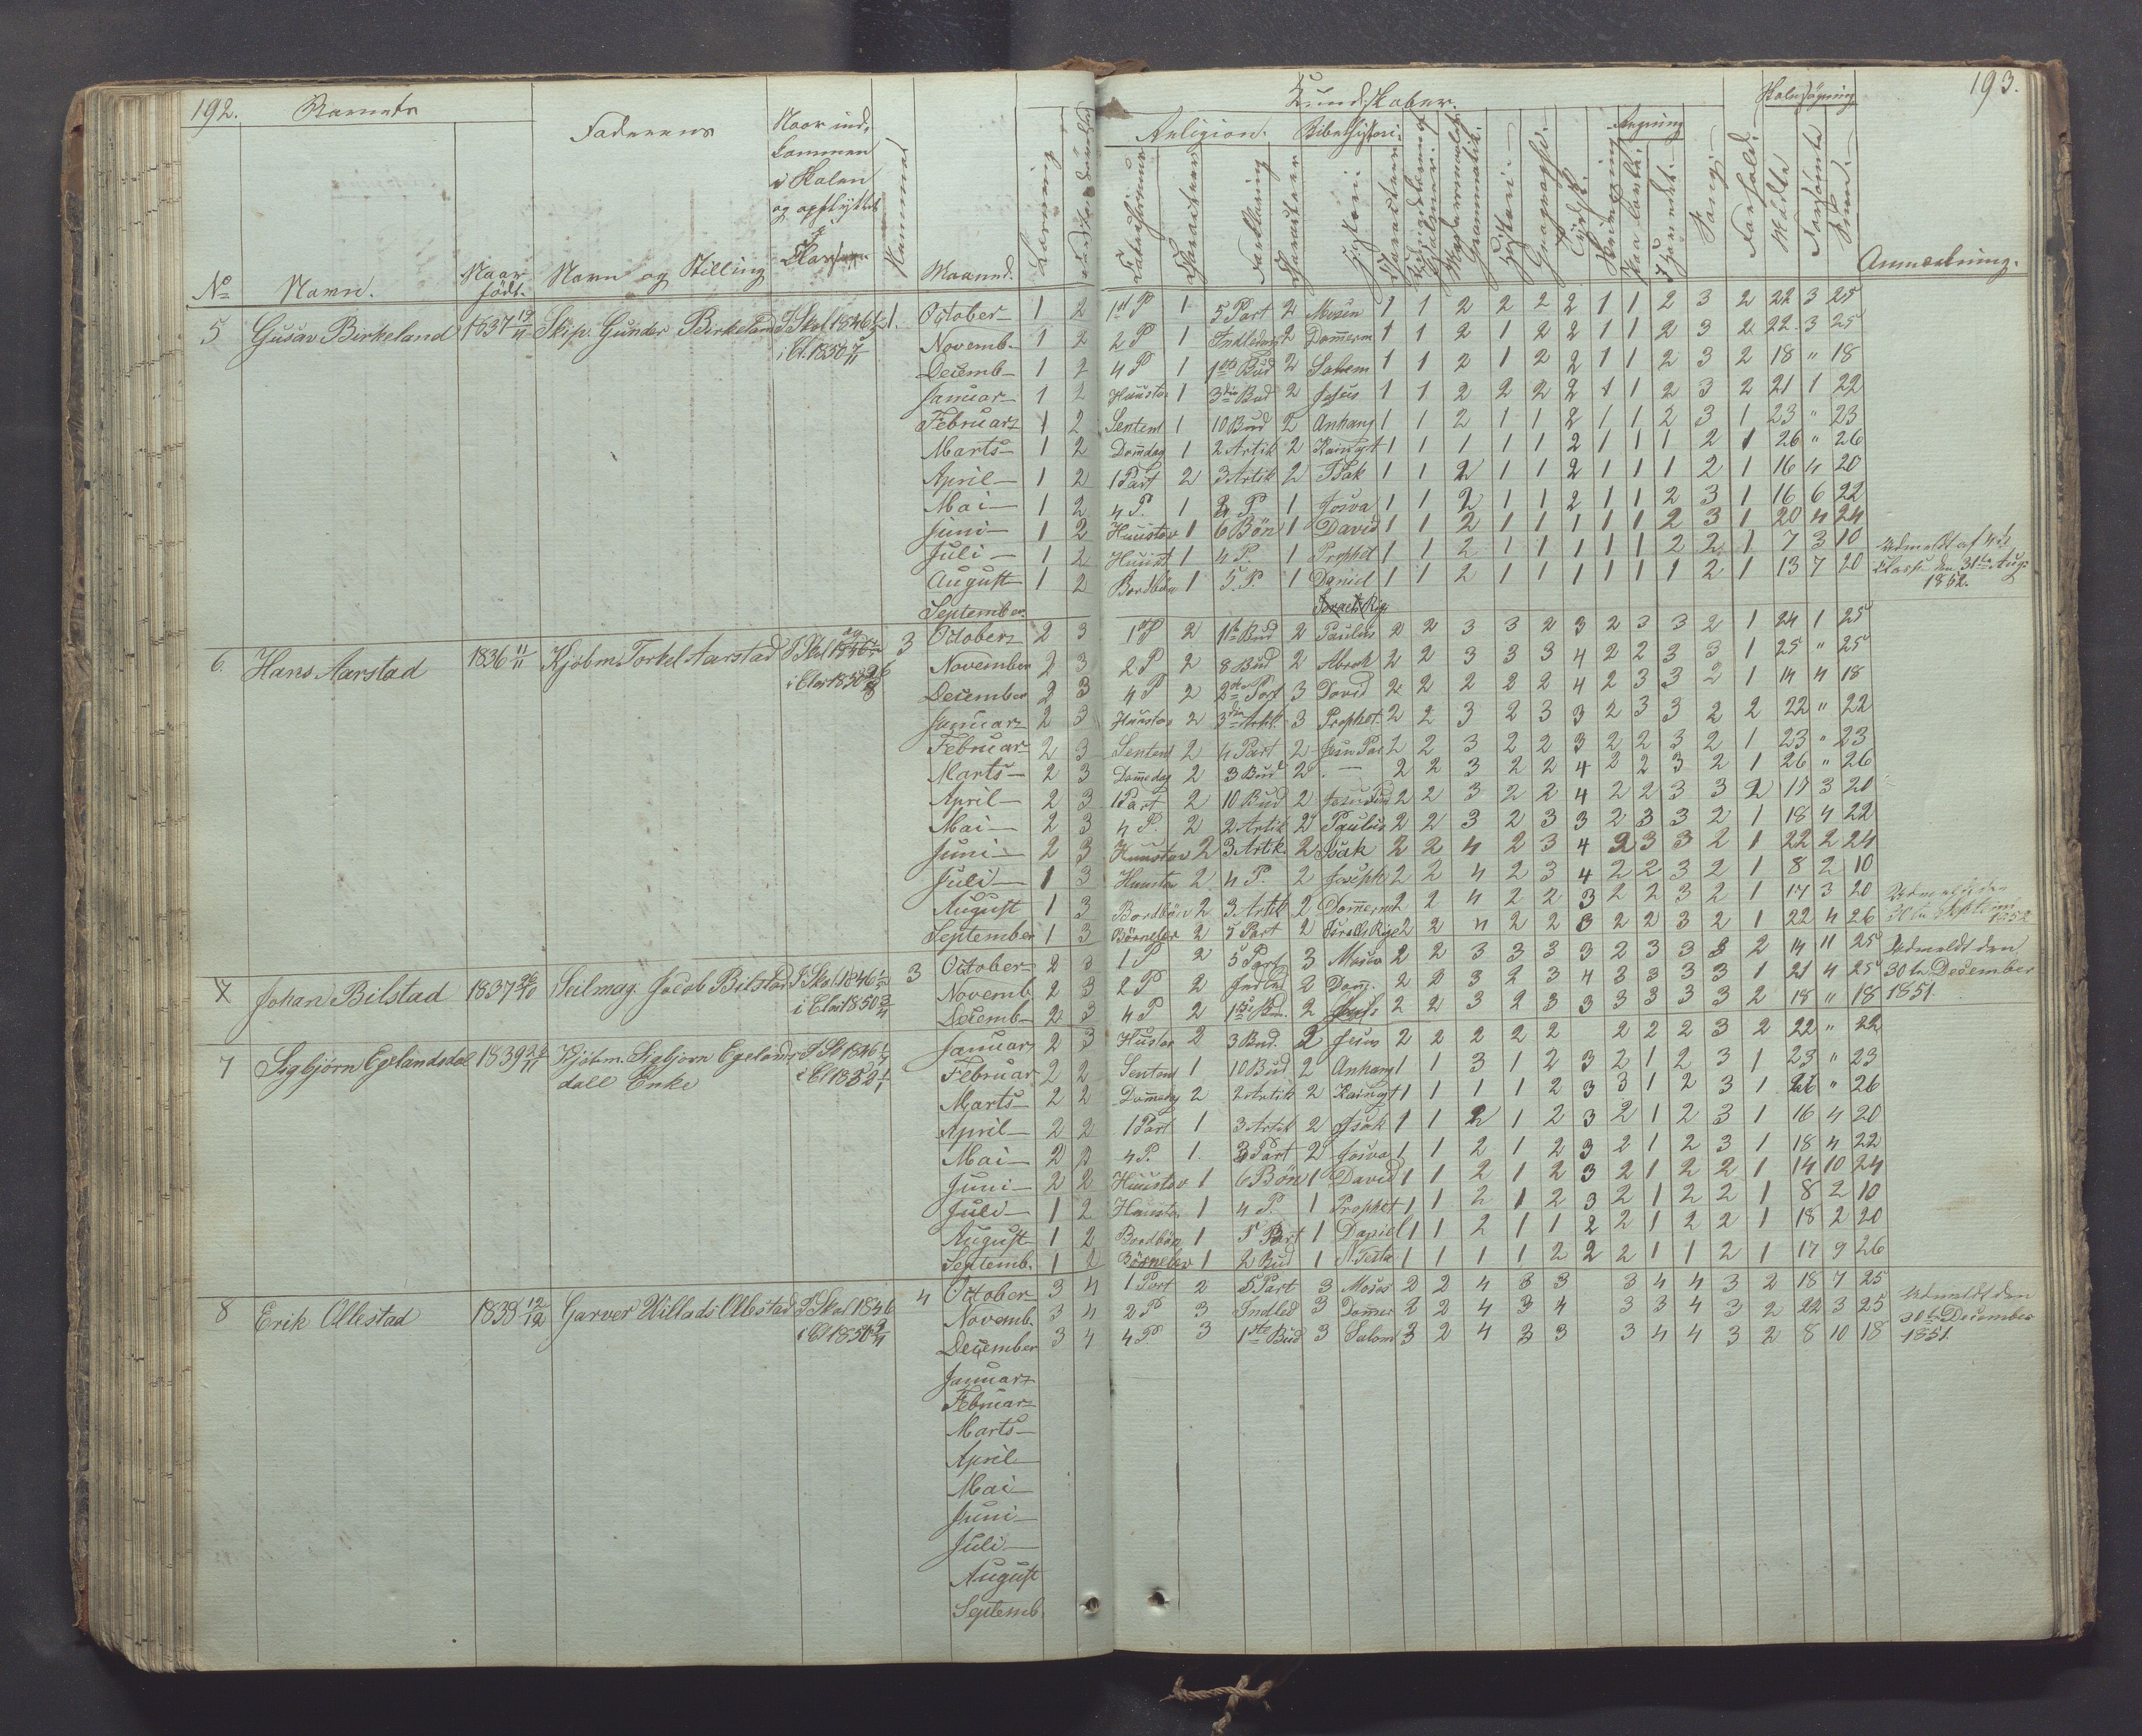 192.
Barnets
Faderens
Naar ind-
kommen
i Skolen
og opflyttet
i
Classen
Nummer
No
Navn.
Naar
födt.
Navn og Stilling
Maaned.
Kundskaber.
Religion.
Bibelhistorie
Regning
Skolesögning
193.
Forklaring
Historie
Geographi
Sang
Forhold
Mödte
Forsömte
Anmærkning.
5 Gusav Birkeland 1837 19/11 Skip. Gunder Birkeland I Skol. 1846 1. October 1 2 1st P 1 5 Part 2 Mosen 1 1 2 2 2 2 1 1 2 3 2 22 3 25
i Cl. 1850 Novemb. 1 2 2 P 1 2 1 1 2 1 2 2 1 1 2 3 2 22 3 25
Decemb 1 2 4 P 1 1ste Bud 2 1 1 2 1 2 2 1 1 2 3 2 18 " 18
Januar 1 2 Huustav 1 3die Bud 2 Jesus 1 1 2 2 2 2 1 1 2 3 2 21 1 22
Februar 1 2 Sentent 1 10 Bud 2 Anhang 1 1 2 1 1 2 1 1 2 3 1 23 " 23
Marts 1 2 Domdag 1 2 Artik 2 1 1 1 1 1 2 1 1 1 2 1 26 " 26
April 1 2 1 Part 2 3 Artik 2 Isak 1 1 2 1 1 2 1 1 1 2 1 16 4 20
Mai 1 2 4 P. 1 P 1 Josva 1 1 2 1 1 2 1 1 2 3 1 16 6 22
Juni 1 2 Huustav 1 6 Bön 1 David 1 1 2 1 1 1 1 1 2 3 1 20 4 24
Juli 1 2 Huust 1 4 P. 1 Prophet 1 1 2 1 1 1 1 1 2 2 1 7 3 10
August 1 2 Bordbön 1 5. P. 1 Daniel 1 1 2 1 1 1 1 1 1 2 1 13 7 20
Udmeldt af
Classe den 31te Aug.
1852.
September
6. Hans Aarstad 1836 11/11 Kjöbm. Torkel Aarstad I Skol 1846 3 October 2 3 1st P 2 1te Bud 2 Paulus 2 2 3 3 2 3 2 3 3 2 1 24 1 25
i Clas 1850 November 2 3 2 P 2 8 Bud 2 Abrah 2 2 3 3 3 4 2 2 3 3 1 25 " 25
December 2 3 4 P 2 2den Part 3 David 2 2 2 2 2 4 2 3 3 2 1 14 4 18
Januar 2 3 Huustav 2 3die Artkl. 3 Prophet. 2 2 3 2 3 3 2 3 3 2 2 22 " 22
Februar 2 3 Sentent 2 4 Part 2 2 2 3 2 2 3 2 2 3 2 1 23 " 23
Marts 2 3 Domedag 2 3 Bud 2 — 2 2 3 2 2 4 2 2 3 2 1 26 " 26
April 2 3 1 Part 2 10 Bud 2 2 2 3 2 2 4 2 2 3 3 2 17 3 20
Mai 2 3 4 P. 2 2 Artik 2 Paulus 2 2 3 2 3 3 2 3 3 2 1 18 4 22
Juni 2 3 Huustav 2 3 Artik. 2 Isak 2 2 4 2 3 4 2 3 3 2 1 22 2 24
Juli 1 3 Huustav 2 4 P. 2 Joseph 2 2 4 2 3 4 2 2 3 2 1 8 2 10
August 1 3 Bordbön 2 3 Artik 2 Dommerne 2 2 4 2 2 3 2 2 3 2 1 17 3 20
September 1 3 Börnelær 2 5 Part 2 Israels Rige 2 2 4 2 2 3 2 2 3 2 1 22 4 26
1852
7 Johan Bilstad 1837 26/10 Seilmag. Jacob Bilstad I Skol. 1846 3 October 2 3 1 P 2 5 Part 3 Moses 2 2 3 3 3 3 2 3 3 3 2 14 11 25
i Clas 1850 Novemb. 2 3 2 P 2 2 Dom. 2 2 3 2 3 4 3 3 3 3 1 21 4 25
Decemb 2 3 4 P 2 1ste Bud. 2 2 2 3 2 3 3 3 3 3 3 2 18 " 18
Udmeldt den
30te December
1851.
7 Sigbjörn Egelandsdal 1839 Kjöbm. Sigbjorn Egelands- I Sk 1846 Januar 2 3 Hustav 2 3 Bud. 2 Jesus 2 2 2 2 2 2 2 2 3 2 22 " 22
dall Enke i Cl 1852 Februar 2 2 Sentent 1 10 Bud 2 Anhang 1 1 3 1 2 3 2 1 2 3 1 23 " 23
Marts 2 2 Domedag 2 2 Artik 2 1 1 1 1 2 3 3 1 2 3 1 26 " 26
April 2 2 1 Part 1 3 Artik 2 Isak 1 1 2 1 2 3 2 1 2 3 1 16 4 20
Mai 2 2 4 P. 1. 3 Part 2 Josva 1 1 2 1 2 3 2 1 2 3 1 18 4 22
Juni 2 2 Huustav 1 6 Bön 1 David 1 1 2 1 2 3 2 1 2 2 1 14 10 24
Juli 1 2 Huustav 1 4 P. 1 Prophet 1 1 2 1 2 3 2 1 2 2 1 8 2 10
August 1 2 Bordbön 1 5 Part 1 Daniel 1 1 2 1 1 2 2 1 2 2 1 18 2 20
Septemb. 1 2 Börnelær 1 2 Bud 1 N. Testa 1 1 1 1 2 2 2 1 1 2 1 17 9 26
8 Erik Ollestad 1838 12/12 Garver Willads Ollestad I Skol 1846 4 October 3 4 1 Part 2 5 Part 3 Moses 2 2 4 3 3 3 4 4 3 2 18 7 25
i Cl 1850 Novemb. 3 4 2 P 3 Indled 3 Dommer 2 2 4 3 4 3 3 4 3 2 22 3 25
December 3 4 4 P. 3 1ste Bud 3 Salom 3 2 4 3 3 3 4 4 3 2 8 10 18
Udmeldt den
30te December
1851.
Januar
Februar
Marts
April
Mai
Juni
Juli
August
Septemb.